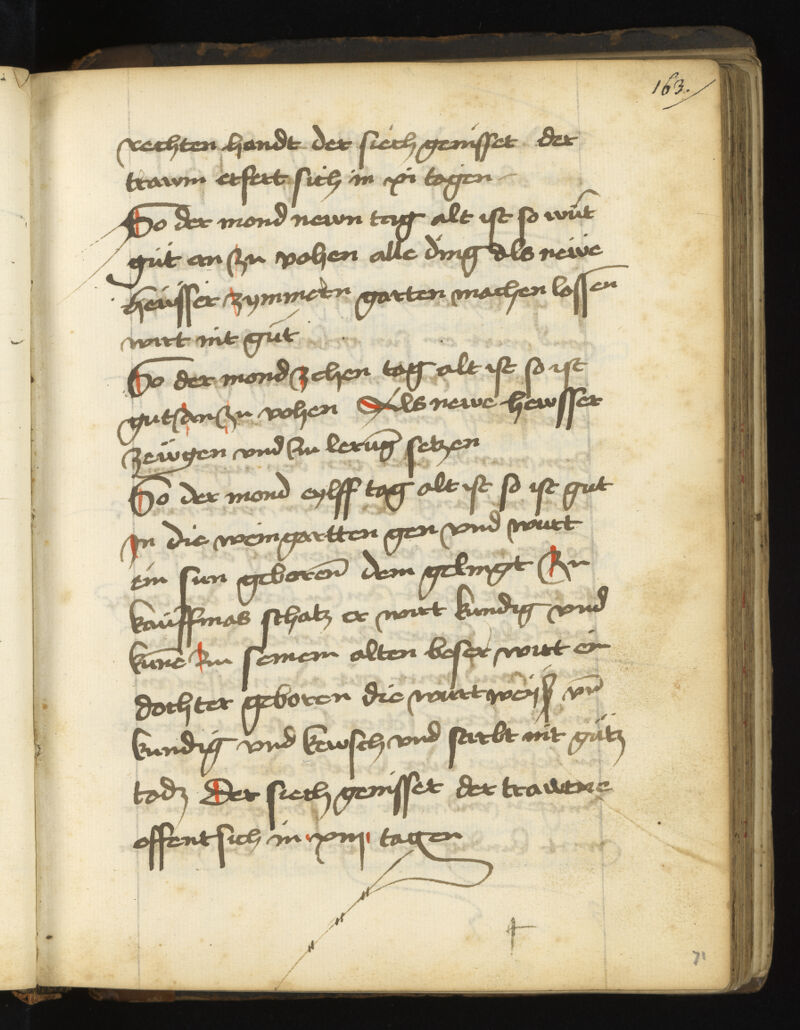 163.
rechten handt der siech genisset der
trawm erfert sich in xi tagen
So der mond newn tag alt ist so wūt
güt an zu vohen alle ding als newe
heüsser zymmern garten machen lossen̄
wirt nit güt
So der mond zehen tag alt ist so ist
gut an zu vohen Als newe hewsser
zewgen vnd Im lerūg setzen
So der mond eylff tag alt ist so ist gut
In die weingartten gen vnd wurt
ein sun geboren̄ dem gelingt Zu
kauffmas schatz er wirt kundig vnd
kūne Im seinem alten beser wirt ein
dochter geboren die wurt weiß vn̄
kundig vnd kewsch vnd starbt nit gütz
todz Der siech genisset der
offent sich in xiiii tagen
71